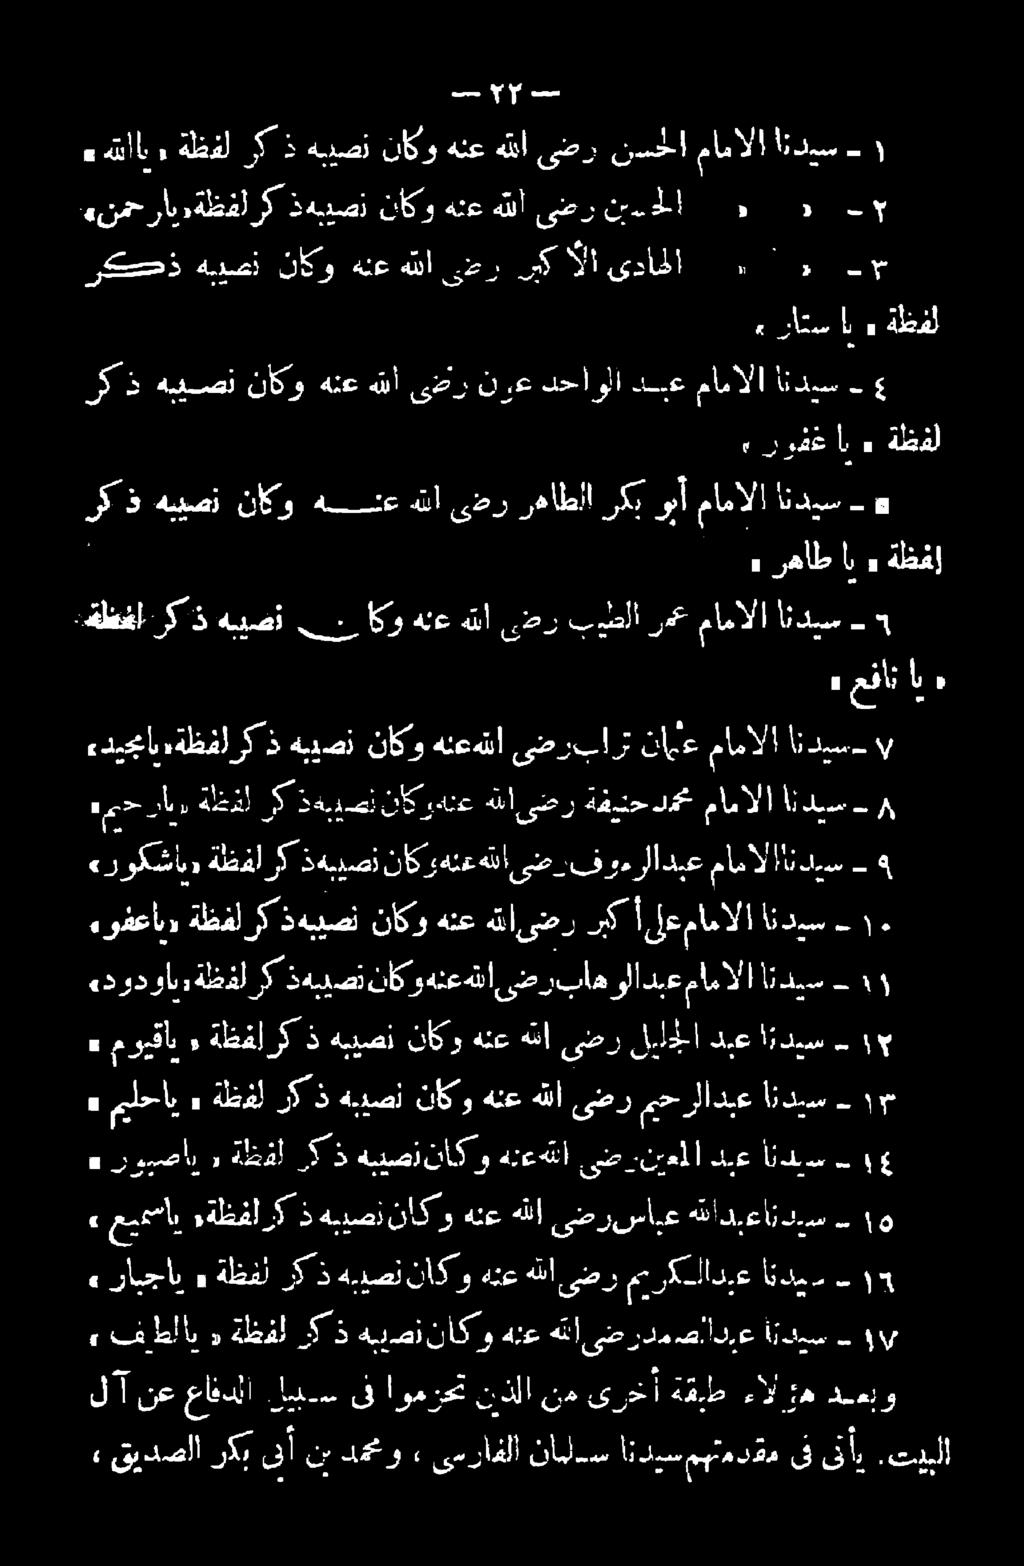 — ٢٢ —
١ - سيدنا الامام الحسن رضى الله عنه وكان نصيبه ذكر لفظة «ياالله»
٢ - » » الحسين رضى الله عنه وكان نصيبه ذكر لفظة «يارحمن»
٣ - » » الهادى الأكبر رضى الله عنه وكان نصيبه ذكر
لفظة « يا ستار »
٤ - سيدنا الامام عبد الواحد عون رضى الله عنه وكان نصيبه ذكر
لفظة « يا غفور »
٥ - سيدنا الامام أبو بكر الطاهر رضى الله عنه وكان نصيبه ذكر
لفظة « يا طاهر »
٦ - سيدنا الامام عمر الطيب رضى الله عنه وكان نصيبه ذكر لفظة
« يا نافع »
٧ - سيدنا الامام عثمان تراب رضى الله عنه وكان نصيبه ذكر لفظة «يامجيد»
٨ - سيدنا الامام محمد حنيفة رضى الله عنه وكان نصيبه ذكر لفظة «يارحيم»
٩ - سيدنا الامام عبدالرءوف رضى الله عنه وكان نصيبه ذكر لفظة «ياشكور»
١٠ - سيدنا الامام على أكبر رضى الله عنه وكان نصيبه ذكر لفظة «ياعفو»
١١ - سيدنا الامام عبدالوهاب رضى الله عنه وكان نصيبه ذكر لفظة «ياودود»
١٢ - سيدنا عبد الجليل رضى الله عنه وكان نصيبه ذكر لفظة « ياقيوم »
١٣ - سيدنا عبدالرحيم رضى الله عنه وكان نصيبه ذكر لفظة « ياحليم »
١٤ - سيدنا عبد المعين رضى الله عنه وكان نصيبه ذكر لفظة « ياصبور »
١٥ - سيدنا عبدالله عباس رضى الله عنه وكان نصيبه ذكر لفظة « ياسميع »
١٦ - سيدنا عبدالكريم رضى الله عنه وكان نصيبه ذكر لفظة « ياجبار »
١٧ - سيدنا عبدالصمد رضى الله عنه وكان نصيبه ذكر لفظة « يالطيف »
وبعد هؤلاء طبقة أخرى من الذين تحزموا فى سبيل الدفاع عن آل
البيت . يأتى فى مقدمتهم سيدنا سلمان الفارسى ، ومحمد بن أبى بكر الصديق ،